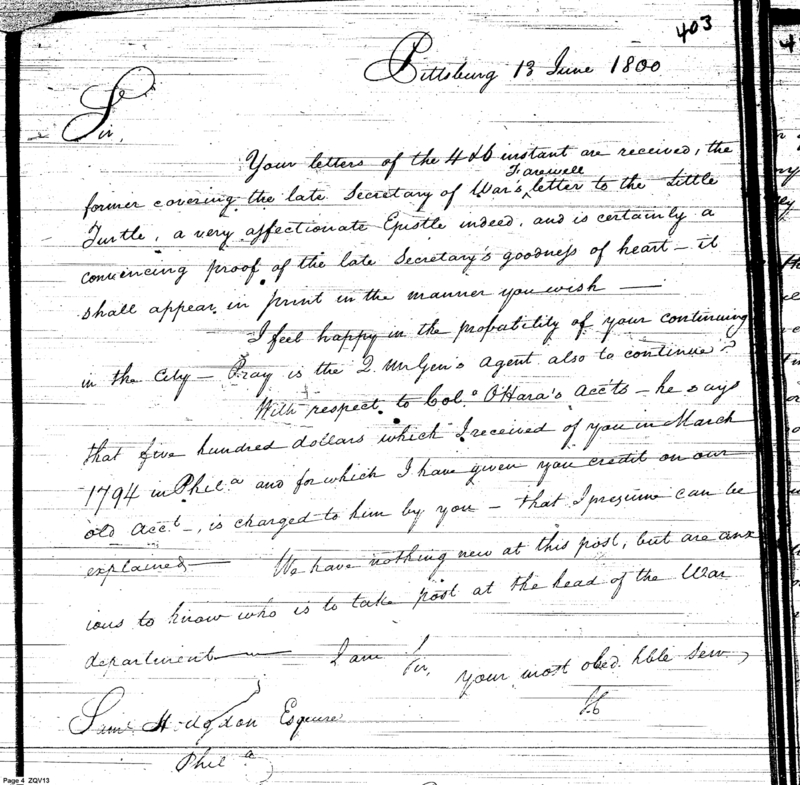 403
Pittsburg 13 June 1800
Sir,
Your letters of the 4 & 6 instant are received, the
former covering the late Secretary of War's Farewell letter to the Little
Turtle, a very affectionate Epistle indeed, and is certainly a
convincing proof of the late Secretary's goodness of heart — it
shall appear in print in the manner you wish —
I feel happy in the probability of your continuing
in the City — Pray is the Q. Mr Gen's Agent also to continue?
With respect to Colo O'Hara's Accts — he says
that five hundred dollars which I received of you in March
1794 in Phila and for which I have given you credit on our
old Acct —, is charged to him by you — that I presume can be
explained — We have nothing new at this post, but are anx
ious to know who is to take post at the head of the War
department — I am Sir,
your most obed. hble Serv.
Saml Hodgdon Esquire
Phila
Page 4 ZQV13